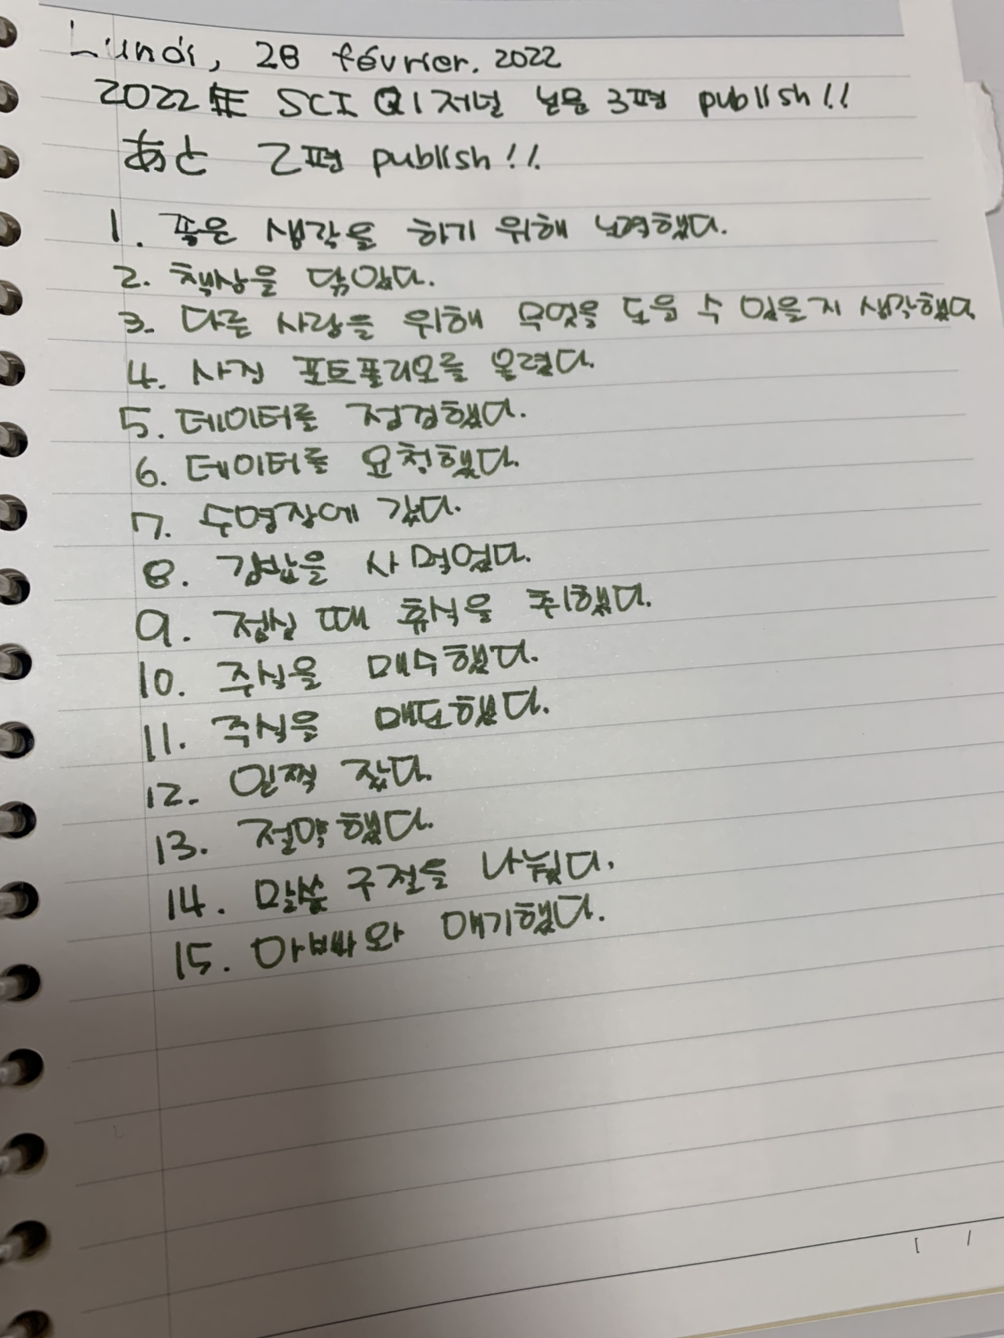 Lundi, 28 février. 2022
2022年 SCI Q1 저널 논문 3편 publish!!
あと 2편 publish!!
1. 좋은 생각을 하기 위해 노력했다.
2. 책상을 닦았다.
3. 다른 사람을 위해 무엇을 도울 수 있을지 생각했다
4. 사진 포트폴리오를 올렸다.
5. 데이터를 점검했다.
6. 데이터를 요청했다.
7. 수영장에 갔다.
8. 김밥을 사 먹었다.
9. 점심 때 휴식을 취했다.
10. 주식을 매수했다.
11. 주식을 매도했다.
12. 일찍 잤다.
13. 절약했다.
14. 말씀 구절을 나눴다.
15. 아빠와 얘기했다.